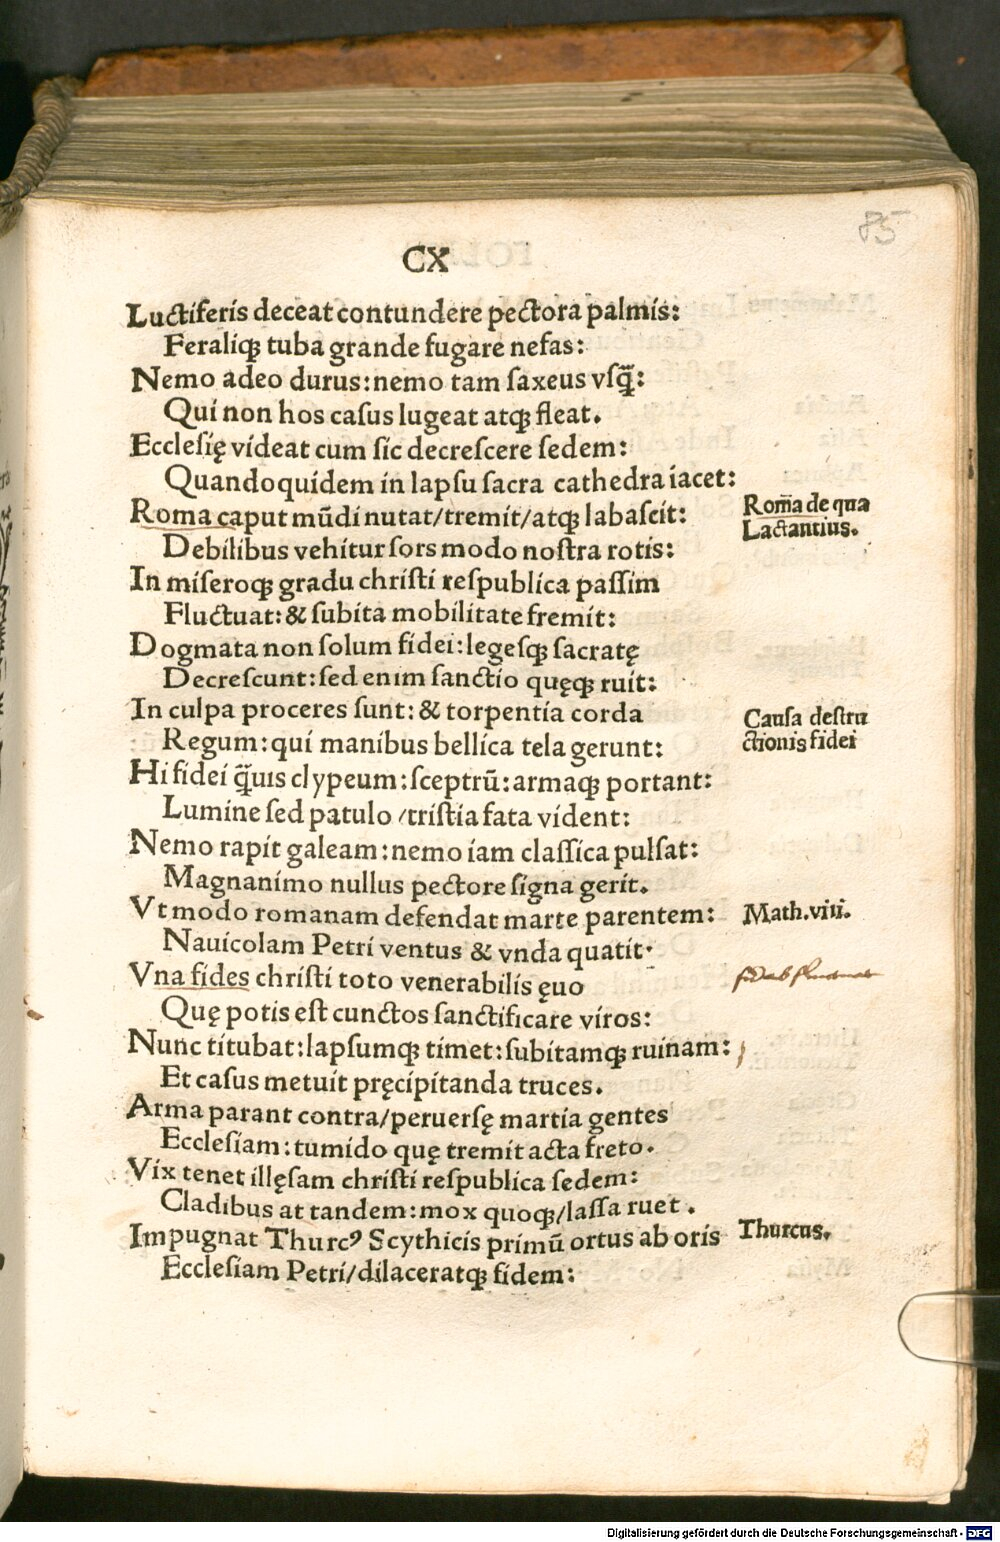 85
CX
Luctiferis deceat contundere pectora palmis:
Feraliqꝫ tuba grande fugare nefas:
Nemo adeo durus: nemo tam ſaxeus vſq̃:
Qui non hos caſus lugeat atqꝫ fleat.
Eccleſię videat cum ſic decreſcere ſedem:
Quandoquidem in lapſu ſacra cathedra iacet:
Roma caput mūdi nutat/tremit/atqꝫ labaſcit:
Roma de qua
Lactantius.
Debilibus vehitur ſors modo noſtra rotis:
In miſeroqꝫ gradu chriſti reſpublica paſſim
Fluctuat: & ſubita mobilitate fremit:
Dogmata non ſolum fidei: legeſqꝫ ſacratę
Decreſcunt: ſed enim ſanctio quęqꝫ ruit:
In culpa proceres ſunt: & torpentia corda
Cauſa deſtru
ctionis fidei
Regum: qui manibus bellica tela gerunt:
Hi fidei q̃uis clypeum: ſceptrū: armaqꝫ portant:
Lumine ſed patulo/triſtia fata vident:
Nemo rapit galeam: nemo iam claſſica pulſat:
Magnanimo nullus pectore ſigna gerit.
Vt modo romanam defendat marte parentem:
Math.viii.
Nauicolam Petri ventus & vnda quatit.
Vna fides chriſti toto venerabilis ęuo
Quę potis eſt cunctos ſanctificare viros:
Nunc titubat: lapſumqꝫ timet: ſubitamqꝫ ruinam:
Et caſus metuit pręcipitanda truces.
Arma parant contra/peruerſę martia gentes
Eccleſiam: tumido quę tremit acta freto.
Vix tenet illęſam chriſti reſpublica ſedem:
Cladibus at tandem: mox quoqꝫ/laſſa ruet.
Impugnat Thurcꝰ Scythicis primū ortus ab oris
Thurcus.
Eccleſiam Petri/dilaceratqꝫ fidem:
Digitalisierung gefördert durch die Deutsche Forschungsgemeinschaft - DFG